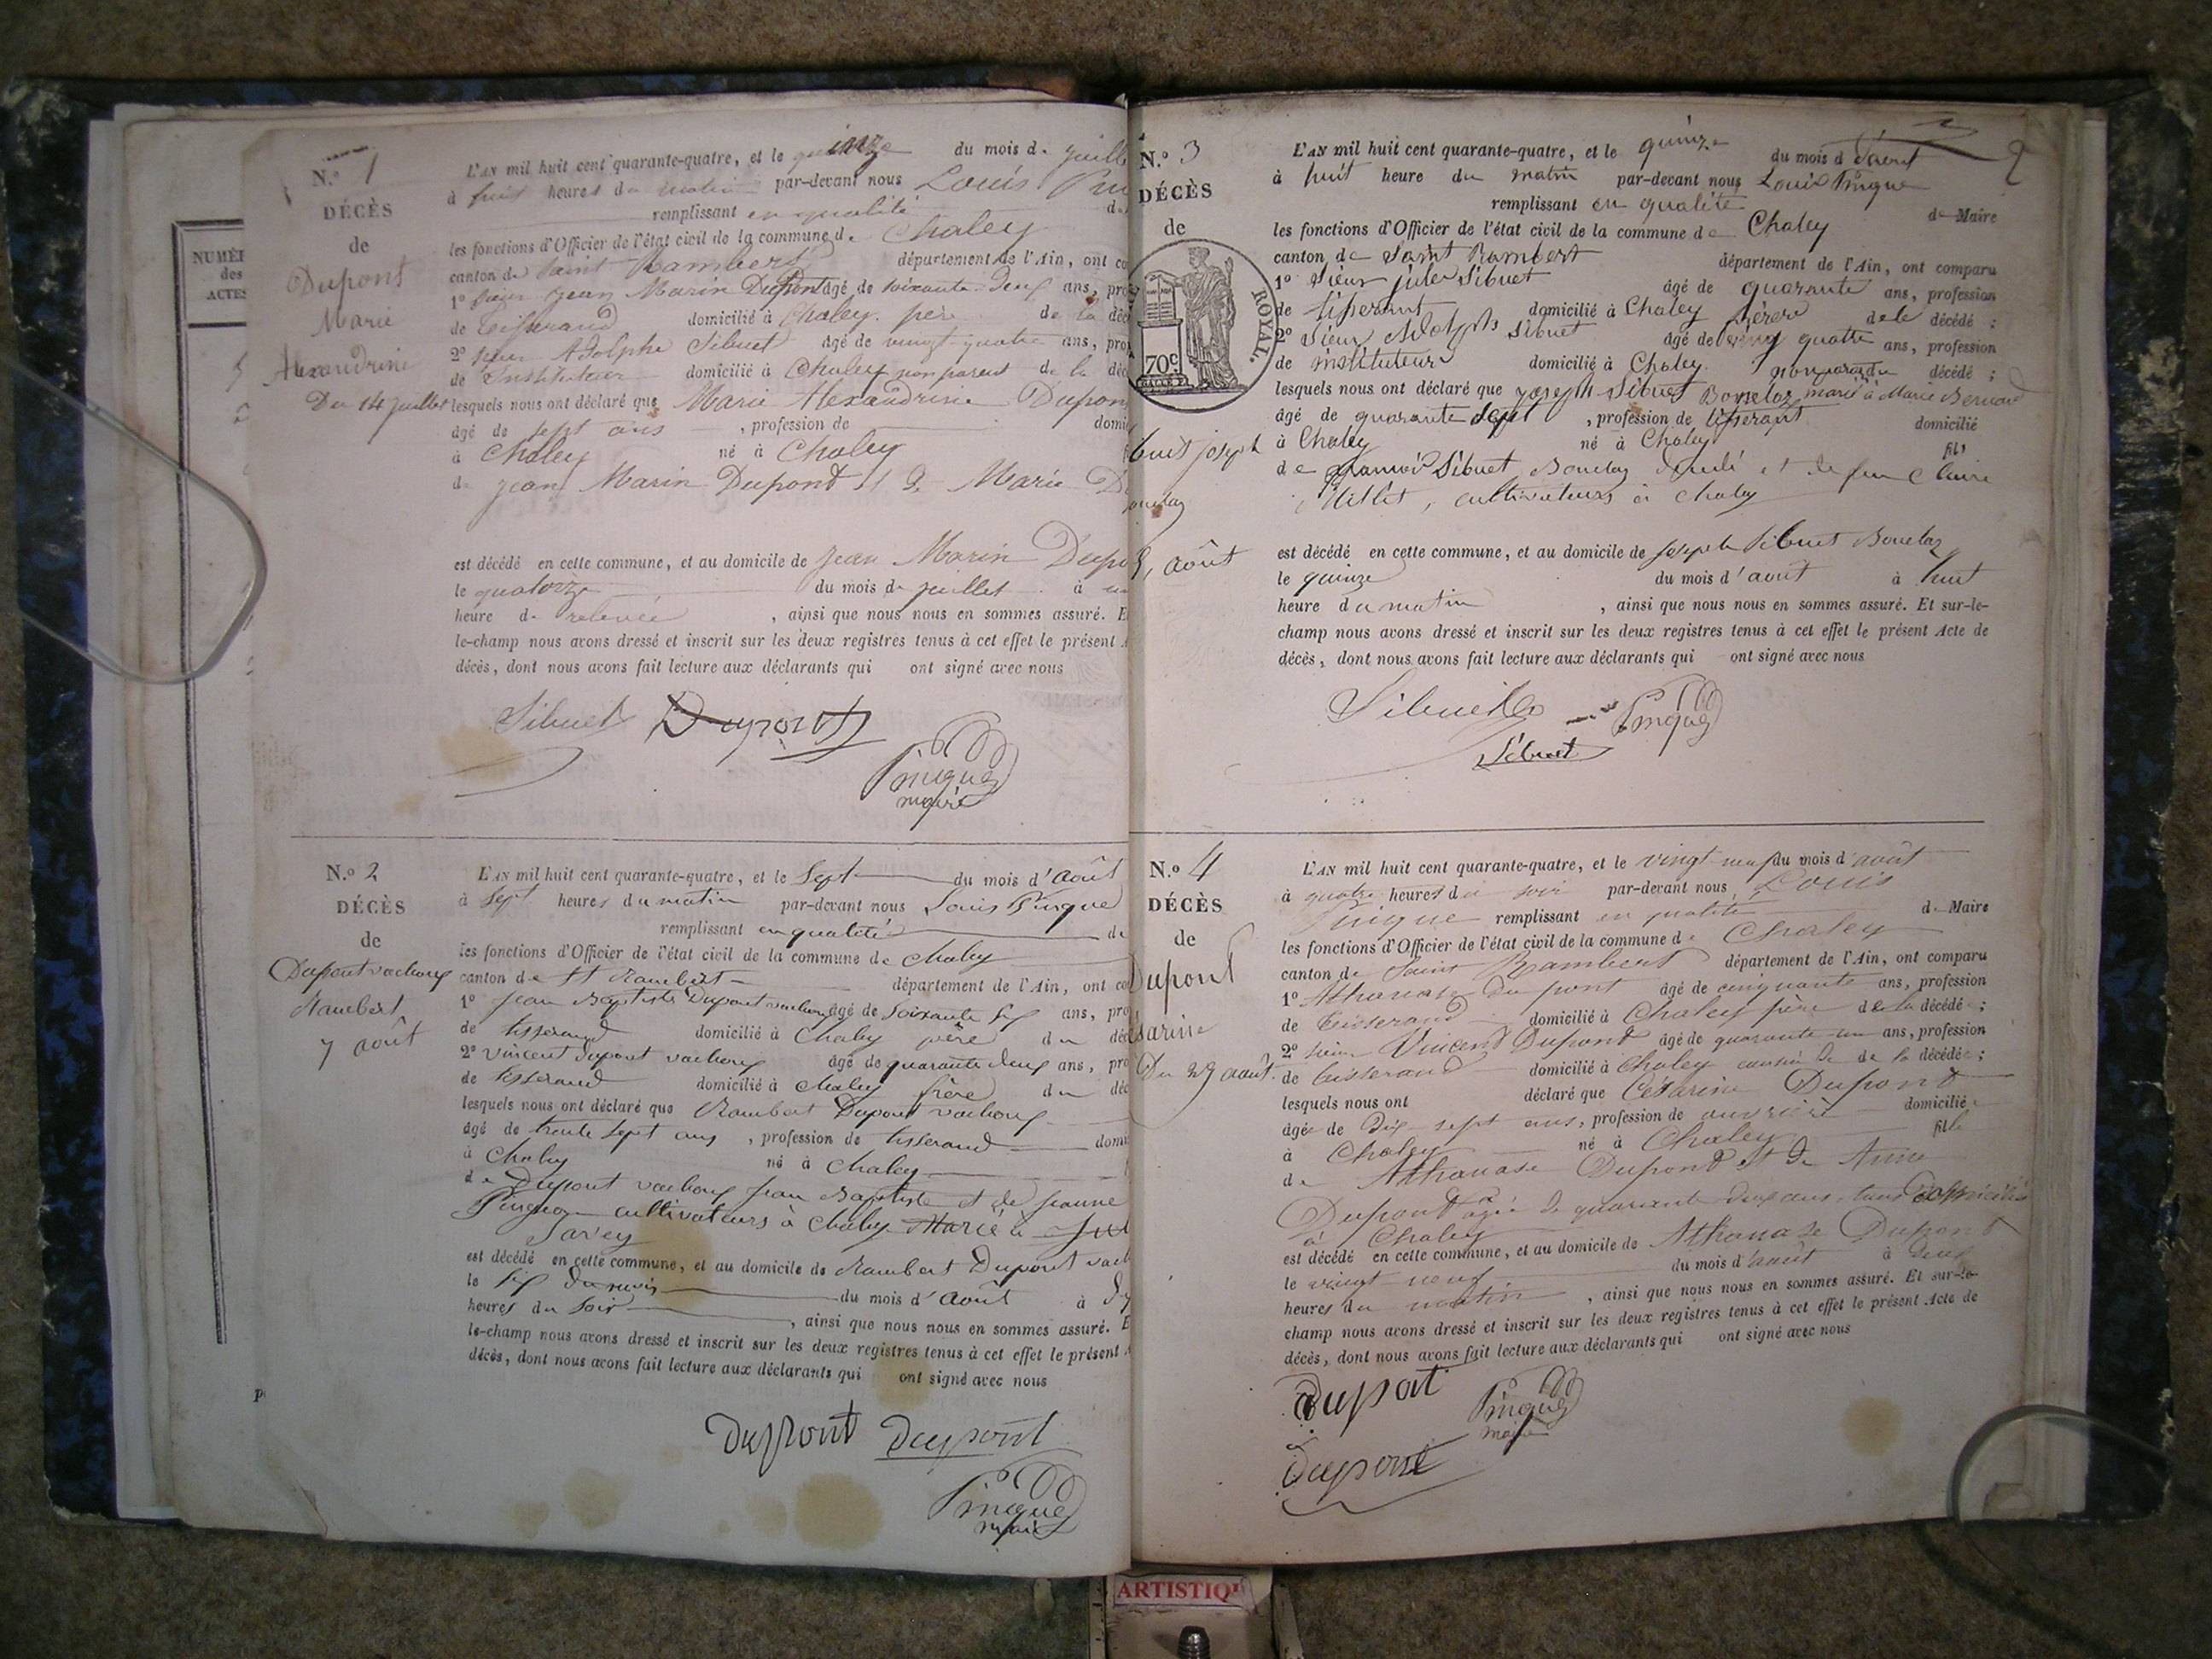 NUMÉR
des
ACTES
N.º 1
DÉCÈS
de
Dupont
Marie
Alexandrine
Du 14 juillet
L'AN mil huit cent quarante-quatre, et le quinze du mois de juille
à huit heures du matin par-devant nous Louis Pin
remplissant en qualité de
les fonctions d'Officier de l'état civil de la commune de Chaley
canton de Saint Rambert département de l'Ain, ont co
1º sieur Jean Marin Dupont âgé de soixante-deux ans, pro
de tisserand domicilié à Chaley père de la déc
2º sieur Adolphe Sibuet âgé de vingt-quatre ans, pro
de Instituteur domicilié à Chaley non parent de la déc
lesquels nous ont déclaré que Marie Alexandrine Dupon
âgé de sept ans, profession de domi
à Chaley né à Chaley
de Jean Marin Dupont et de Marie D
est décédé en cette commune, et au domicile de Jean Marin Dupo
le quatorze du mois de juillet à
heure de relevée, ainsi que nous nous en sommes assuré. E
le-champ nous avons dressé et inscrit sur les deux registres tenus à cet effet le présent A
décès, dont nous avons fait lecture aux déclarants qui ont signé avec nous
Sibuet Dupont
Pingue
maire
N.º 2
DÉCÈS
de
Dupont vachoux
Rambert
7 août
L'AN mil huit cent quarante-quatre, et le Sept du mois d'août
à Sept heures du matin par-devant nous Louis Pingue
remplissant en qualité de
les fonctions d'Officier de l'état civil de la commune de Chaley
canton de St Rambert département de l'Ain, ont co
1º Jean Baptiste Dupont vachoux âgé de soixante six ans, pro
de tisserand domicilié à Chaley père du déc
2º Vincent Dupont vachoux âgé de quarante deux ans, pro
de tisserand domicilié à Chaley frère du déc
lesquels nous ont déclaré que Rambert Dupont vachoux
âgé de trente sept ans, profession de tisserand domi
à Chaley né à Chaley
de Dupont vachoux Jean Baptiste et de Jeanne
cultivateurs à Chaley Marié à
Savey
est décédé en cette commune, et au domicile de Rambert Dupont vach
le six du mois du mois d'août à
heures du soir, ainsi que nous nous en sommes assuré. E
le-champ nous avons dressé et inscrit sur les deux registres tenus à cet effet le présent A
décès, dont nous avons fait lecture aux déclarants qui ont signé avec nous
Dupont Dupont
Pingue
maire
2
N.º 3
DÉCÈS
de
ROYAL.
70c
buet joseph
août
L'AN mil huit cent quarante-quatre, et le quinze du mois d'août
à huit heure du matin par-devant nous Louis Pingue
remplissant en qualité de Maire
les fonctions d'Officier de l'état civil de la commune de Chaley
canton de Saint Rambert département de l'Ain, ont comparu
1º Sieur jule Sibuet âgé de quarante ans, profession
de tisserant domicilié à Chaley frère de le décédé ;
2º Sieur Adolphe Sibuet âgé de vingt quatre ans, profession
de instituteur domicilié à Chaley non parent du décédé ;
lesquels nous ont déclaré que joseph Sibuet Bouelaz marié à Marie Bernard
âgé de quarante sept, profession de tisserant domicilié
à Chaley né à Chaley fils
de Sibuet Bouelaz et de feu Claire
Millet, cultivateurs à Chaley
est décédé en cette commune, et au domicile de joseph Sibuet Bouelaz
le quinze du mois d'août à huit
heure du matin, ainsi que nous nous en sommes assuré. Et sur-le-
champ nous avons dressé et inscrit sur les deux registres tenus à cet effet le présent Acte de
décès, dont nous avons fait lecture aux déclarants qui ont signé avec nous
Sibuet
Pingue
Sibuet
N.º 4
DÉCÈS
de
Dupont
sarine
Du 29 août
L'AN mil huit cent quarante-quatre, et le vingt-neuf du mois d'août
à quatre heures du soir par-devant nous Louis
Pingue remplissant en qualité de Maire
les fonctions d'Officier de l'état civil de la commune de Chaley
canton de Saint Rambert département de l'Ain, ont comparu
1º Athanase Dupont âgé de cinquante ans, profession
de tisserand domicilié à Chaley père de la décédée ;
2º sieur Vincent Dupont âgé de quarante un ans, profession
de tisserand domicilié à Chaley cousin de la décédée ;
lesquels nous ont déclaré que Césarine Dupont
âgée de dix-sept ans, profession de ouvrière domicilié
à Chaley né à Chaley fille
de Athanase Dupont et de Anne
Dupont agée de quarante deux ans, tous domiciliés
à Chaley
est décédé en cette commune, et au domicile de Athanase Dupont
le vingt neuf du mois d'août à deux
heures du matin, ainsi que nous nous en sommes assuré. Et sur-le-
champ nous avons dressé et inscrit sur les deux registres tenus à cet effet le présent Acte de
décès, dont nous avons fait lecture aux déclarants qui ont signé avec nous
Dupont
Pingue
maire
Dupont
ARTISTIQU